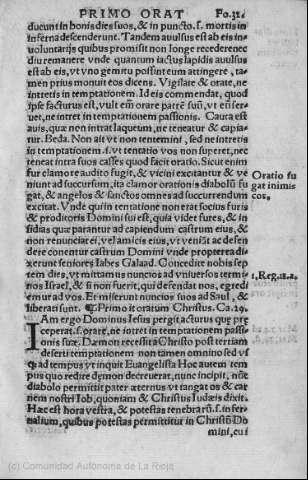 PRIMO ORAT Fo.32.
ducunt in bonis dies suos, & in puncto. s. mortis in
inferna descenderunt. Tandem avulsus est ab eis in-
voluntarijs quibus promisit non longe recederenec
diu remanere vnde quantum iactus lapidis auulsus
est ab eis, vt vno gemitu possint eum attingere, ta-
men prius monuit eos dicens. Vigilate & orate, ne
intretis in temptationem. Ideis commendat, quod
ipse facturus est, vult eñ orare patrē suũ, vt eñ ser-
uet, ne intret in temptationem passionis. Cauta est
auis, quæ non intrat laqueum, ne teneatur & capia-
tur. Beda. Non ait vt non tentemini, sed ne intretis
in temptationem .s. vt tentatio vos non superet, nec
teneat intra suos casses quod facit oratio. Sicut enim
fur clamore audito fugit, & vicini excitantur & ve
niunt ad succursum, ita clamor orationis diabolũ fu
gat, & angelos & sanctos omnes ad succurrendum
excitat. Vnde qui in tentatione non erat socius furis
& proditoris Domini sui est, quia videt fures, & in-
sidias quæ parantur ad capiendum castrum eius, &
non renunciat ei, vel amicis eius, vt veniāt ac defen
dere conentur castrum Domini vnde propterea di-
xerunt seniores Iabes Galaad. Concedite nobis sep
tem dies, vt mittamus nuncios ad vniuersos termi-
nos Israel, & si non fuerit, qui defendat nos, egredi
emur ad vos. Et miserunt nuncios suos ad Saul, &
liberati sunt. ¶ Primo it oratum Christus. Ca.29.
IAm ergo Dominus Iesus pergit acturus que præ
ceperat .s. orare, ne intret in temptationem passi-
onis suæ. Dæmon recessit à Christo post tertiam
deserti temptationem non tamen omnino sed vs
que ad tempus vt inquit Euangelista Hoc autem tem
pus quo redire dæmon decreuerat, nunc incipit, nũc
diabolo permittit pater æternus vt tangat os & car
nem nostri Iob, quoniam & Christus Iudæis dixit.
Hæc est hora vestra, & potestas tenebrarũ .s. infer-
nalium, quibus potestas permittitur in Christũ Do
mini, cui
Oratio fu
gat inimi
cos.
1, Reg. 11. a.
(c) Comunidad Autónoma de La Rioja